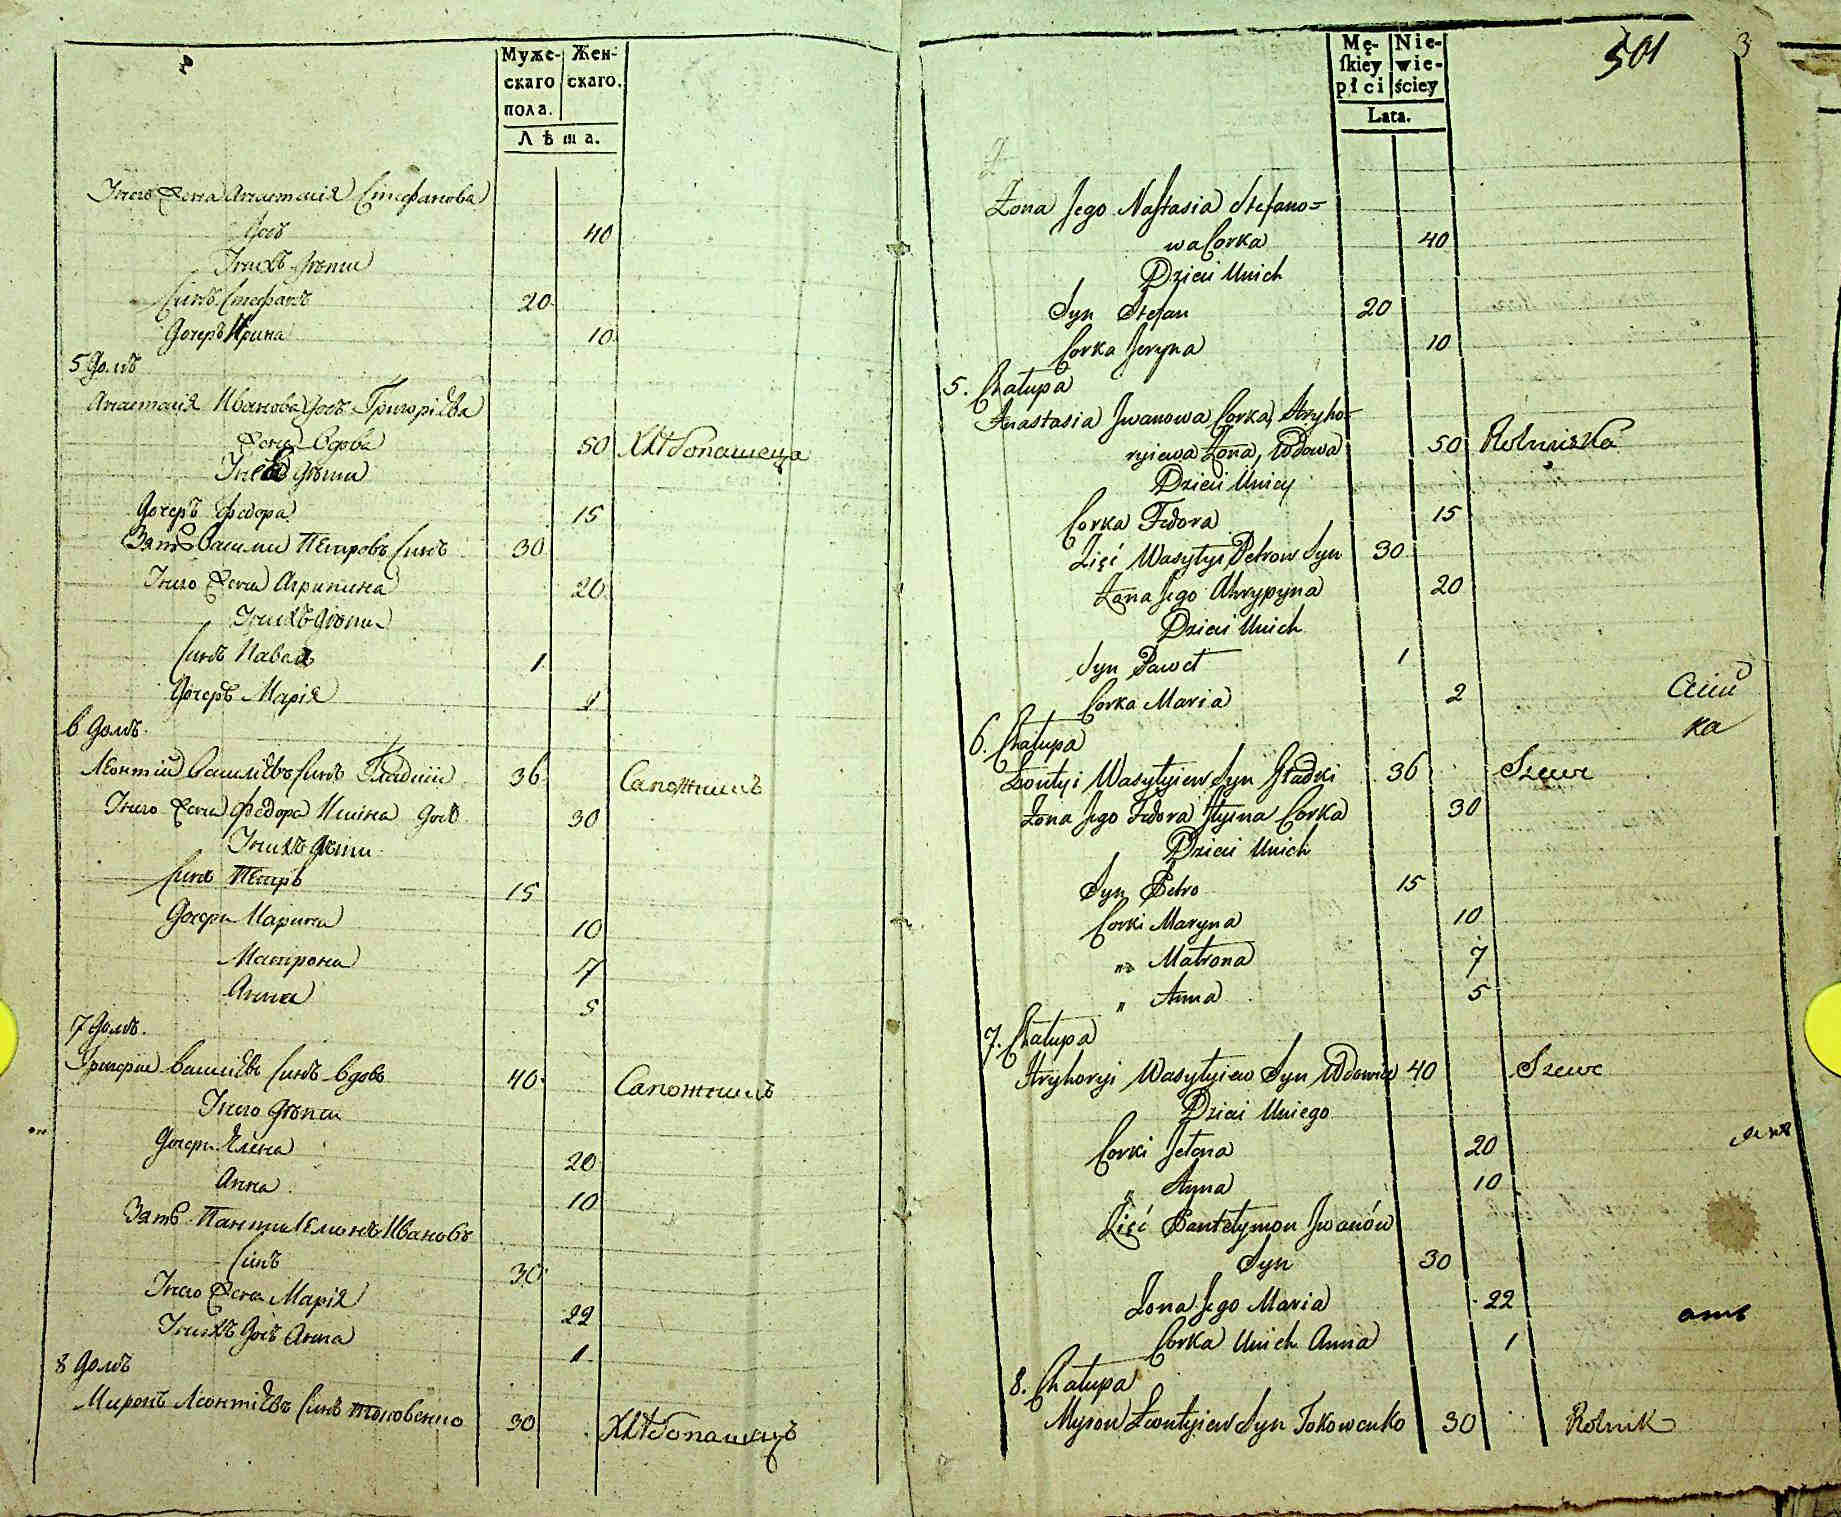 Муже- Жен-
скаго скаго.
пола.
Лѣта.
Анастасія Стефанова
40
Синъ Стефанъ 20
Дочерь Ирина 10
5 Домъ
Анастасія Иванова Григоріева
Жена вдова 50 Хлѣбопашеца
дѣти
Дочерь Федора 15
Зять Васили Петровъ Синъ 30
Жена Агрипина 20
дѣти
Синъ Павелъ 1
Дочерь Марія
6 Домъ.
Леонтій Василіевъ Синъ Гладкій 36 Сапожникъ
Жена Федора 30
дѣти
Синъ Петръ 15
Дочери Марина 10
Матрона 7
Анна 5
7 Домъ.
Григорій Василіевъ Синъ вдовъ 40 Сапожникъ
дѣти
Дочери Елена 20
Анна 10
Зять Пантилемонъ Ивановъ
Синъ 30
Жена Марія 22
Анна 1
8 Домъ
Миронъ Леонтіевъ Синъ 30 Хлѣбопашецъ
501 3
Mę- Nie-
ſkiey wie-
płci ściey
Lata.
Żona Jego Nastasia Stefano=
wa Corka 40
Dzieci Unich
Syn Stefan 20
Corka Jeryna 10
5. Chałupa
Anastasia Jwanowa Corka, Hryho-
ryiewa Żona, Wdowa 50 Rolniczka
Dzieci Uniey
Corka Fedora 15
Zięć Wasylyi Petrow Syn 30
Żona Jego Ahrypyna 20
Dzieci Unich
Syn Paweł 1
Corka Maria 2
6. Chałupa
Leontyi Wasylyiew Syn Hładki 36 Szewc
Żona Jego Fedora Corka 30
Dzieci Unich
Syn Petro 15
Corki Maryna 10
„ Matrona 7
„ Anna 5
7. Chałupa
Hryhoryi Wasylyiew Syn Wdowiec 40 Szewc
Dzieci Uniego
Corki Jelena 20
„ Anna 10
Zięć Pantelymon Jwanów
Syn 30
Żona Jego Maria 22
Corka Unich Anna 1
8. Chałupa
Myron Leontyiew Syn Tokowenko 30 Rolnik
ка